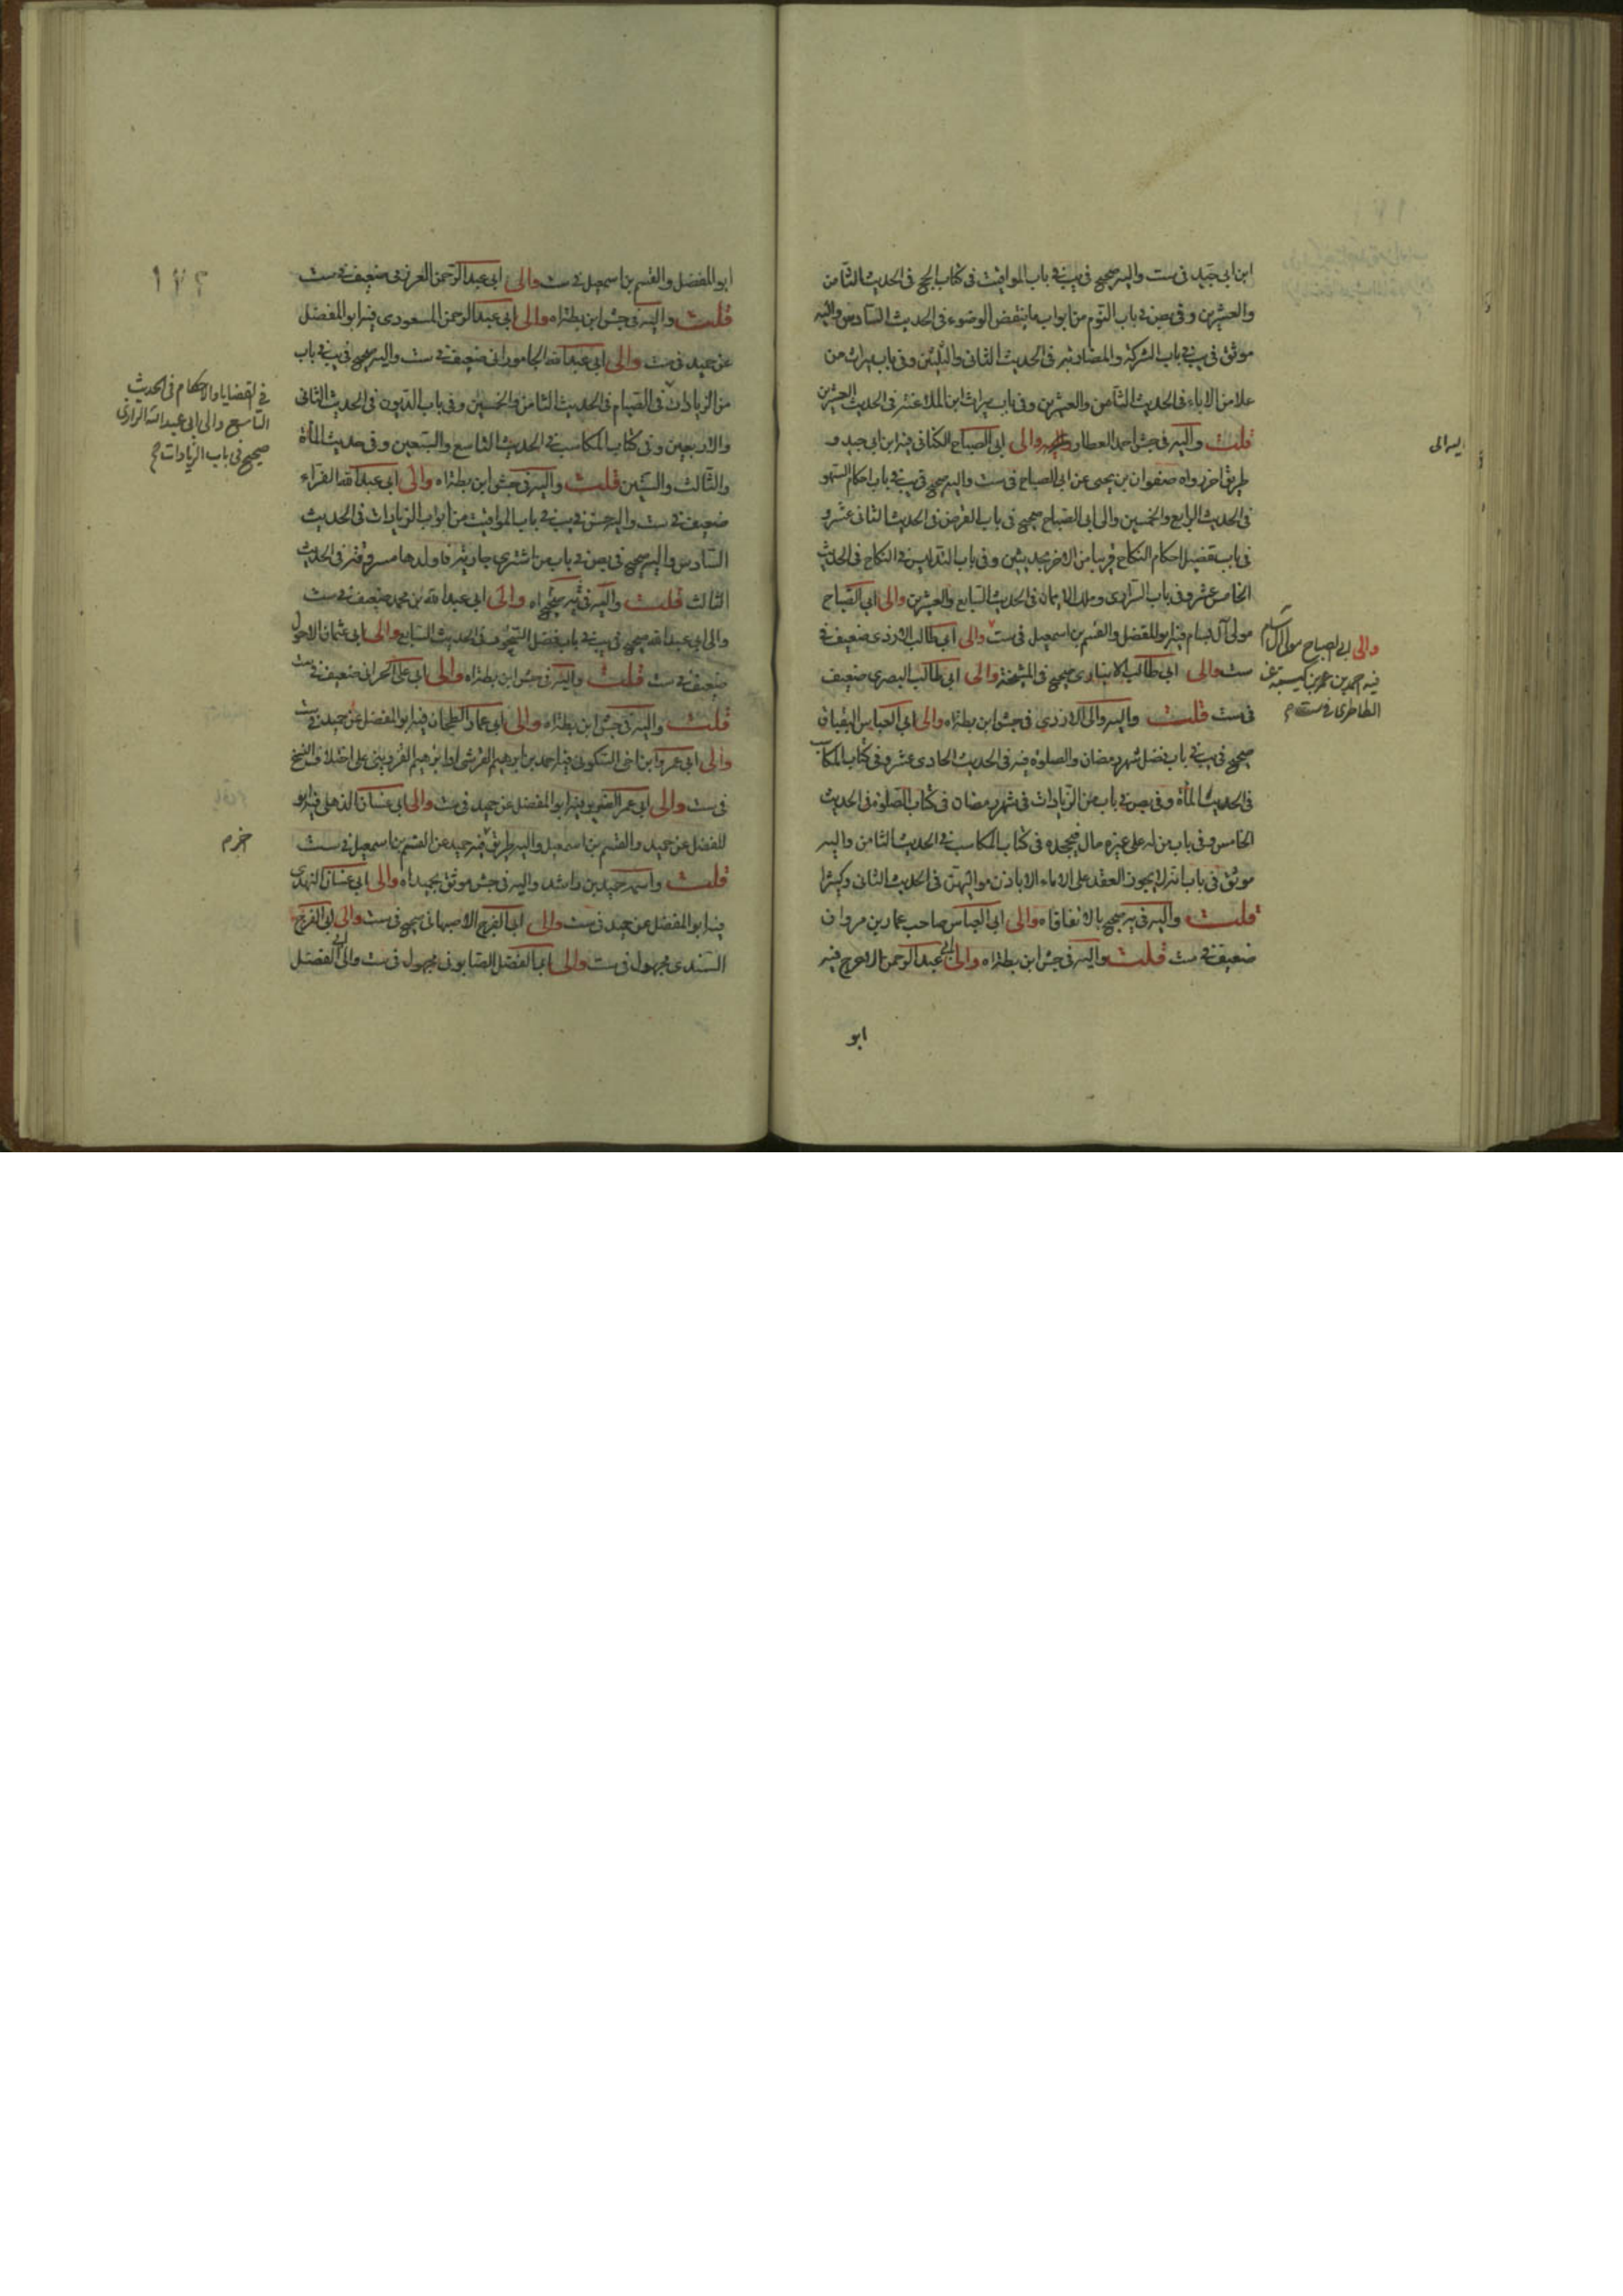 ابن ابي جيد في ست واليه صحيح في يب في باب المواقيت في كتاب الحج في الحديث الثامن
والعشرين وفي بص في باب النوم من ابواب ما ينقض الوضوء في الحديث السادس واليه
موثق في يب في باب الشركة والمضاربة في الحديث الثاني والثلثين وفي باب ميراث من
علا من الاباء في الحديث الثامن والعشرين وفي باب ميراث ابن الملاعنة في الحديث العشرين
قلت واليه في جش احمد العطار والى ابي الصباح الكناني فيه ابن ابي جيد و
طريق اخر رواه صفوان بن يحيى عن ابي الصباح في ست واليه صحيح في يب في باب احكام السهو
في الحديث الرابع والخمسين والى ابي الصباح صحيح في باب القرض في الحديث الثاني عشر و
في باب تفصيل احكام النكاح قريبا من الاخر بحديثين وفي باب التدليس في النكاح في الحديث
الخامس عشر وفي باب السراري وملك الايمان في الحديث السابع والعشرين والى ابي الصباح
مولى آل بسام فيه ابو المفضل والقسم بن اسمعيل في ست والى ابي طالب الازدي ضعيف في
ست والى ابي طالب الانباري صحيح في المشيخة والى ابي طالب البصري ضعيف
في ست قلت واليه والى الازدي في جش ابن بطة اه والى ابي العباس البقباق
صحيح في يب في باب فضل شهر رمضان والصلوة فيه في الحديث الحادي عشر وفي كتاب المكاسب
في الحديث المأة وفي بص في باب من الزيادات في شهر رمضان في كتاب الصلوة في الحديث
الخامس وفي باب من له على غيره مال فيجحده في كتاب المكاسب في الحديث الثامن واليه
موثق في باب انه لا يجوز العقد على الاماء الا باذن مواليهن في الحديث الثاني وكثيرا
قلت واليه في يه صحيح بالاتفاق اه والى ابي العباس صاحب عمار بن مروان
ضعيف في ست قلت واليه في جش ابن بطة اه والى ابي عبد الرحمن الاعرج فيه
ابو
اليه والى
والى ابي الصباح مولى آل بسام
فيه احمد بن عمر بن كيسبة عن
الطاطري في ست م
١٧٢
ابو المفضل والقسم بن اسمعيل في ست والى ابي عبد الرحمن العرزمي ضعيف في ست
قلت واليه في جش ابن بطة اه والى ابي عبد الرحمن المسعودي فيه ابو المفضل
عن حميد في ست والى ابي عبد الله الجاموراني ضعيف في ست واليه صحيح في يب في باب
من الزيادات في الصيام في الحديث الثامن والخمسين وفي باب الديون في الحديث الثاني
والاربعين وفي كتاب المكاسب في الحديث التاسع والسبعين وفي حديث المأة
والثالث والستين قلت واليه في جش ابن بطة اه والى ابي عبد الله الفراء
ضعيف في ست واليه حسن في يب في باب المواقيت من ابواب الزيادات في الحديث
السادس واليه صحيح في بص في باب من اشترى جارية فاولدها مسروقة في الحديث
الثالث قلت واليه في يه صحيح اه والى ابي عبد الله بن محمد ضعيف في ست
والى ابي عبد الله صحيح في يب في باب فضل التجوف في الحديث السابع والى ابي عثمان الاحول
ضعيف في ست قلت واليه في جش ابن بطة اه والى ابي علي الحراني ضعيف في ست
قلت واليه في جش ابن بطة اه والى ابي عمار الطحان فيه ابو المفضل عن حميد في ست
والى ابي عمرو ابن اخي السكوني فيه احمد بن ابرهيم القرشي او ابرهيم القزويني على اختلاف النسخ
في ست والى ابي عمر الضرير فيه ابو المفضل عن حميد في ست والى ابي غسان الذهلي فيه ابو
المفضل عن حميد والقسم بن اسمعيل واليه طريق فيه حميد عن القسم بن اسمعيل في ست
قلت واسمه حميد بن راشد واليه في جش موثق بحميد اه والى ابي غسان النهدي
فيه ابو المفضل عن حميد في ست والى ابي الفرج الاصبهاني صحيح في ست والى ابي الفرج
السندي مجهول في ست والى ابي الفضل الصابوني مجهول في ست والى ابي الفضل
في القضايا والاحكام في الحديث
التاسع والى ابي عبد الله الرازي
صحيح في باب الزيادات صح
خرم